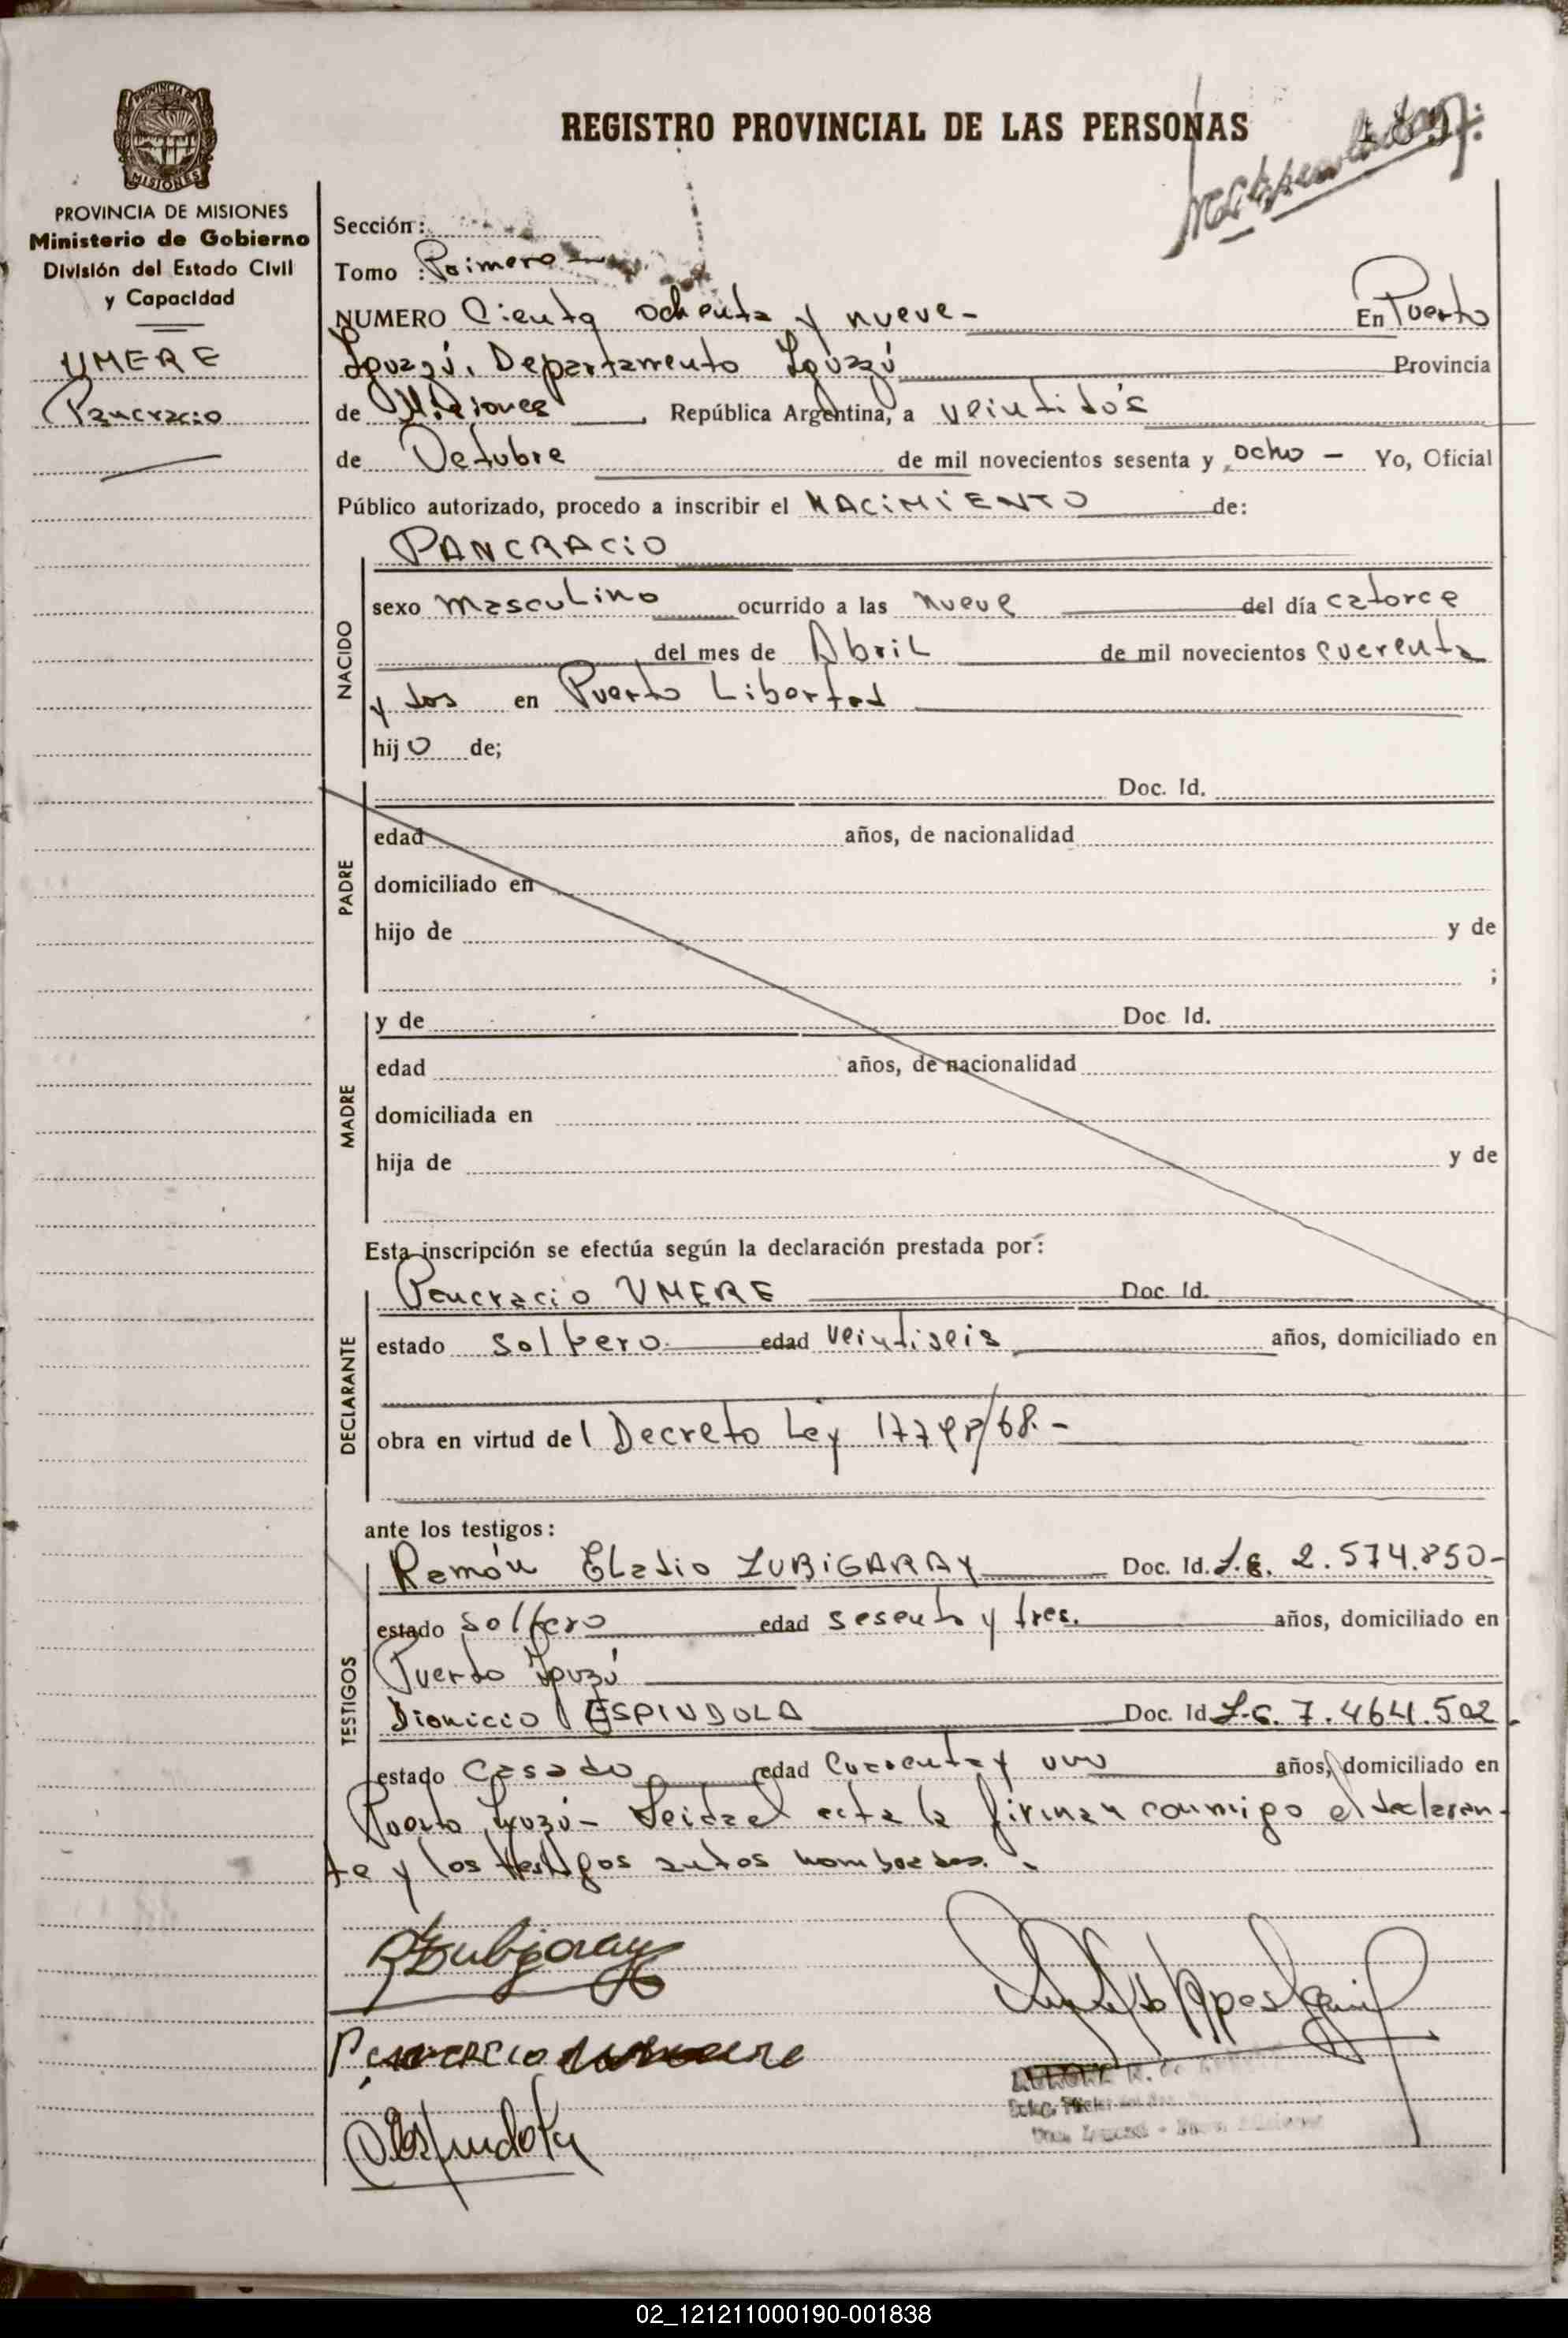 PROVINCIA DE
MISIONES
REGISTRO PROVINCIAL DE LAS PERSONAS
189
PROVINCIA DE MISIONES
Ministerio de Gobierno
División del Estado Civil
y Capacidad
UMERE
Pancracio
Sección:
Tomo : Primero
NUMERO Ciento ochenta y nueve - En Puerto
Iguazú, Departamento Iguazú Provincia
de Misiones, República Argentina, a veintidós
de Octubre de mil novecientos sesenta y ocho - Yo, Oficial
Público autorizado, procedo a inscribir el NACIMIENTO de:
NACIDO
PANCRACIO
sexo masculino ocurrido a las nueve del día catorce
del mes de Abril de mil novecientos cuarenta
y dos en Puerto Libertad
hijo de;
PADRE
Doc. Id.
edad años, de nacionalidad
domiciliado en
hijo de y de
;
MADRE
y de Doc. Id.
edad años, de nacionalidad
domiciliada en
hija de y de
Esta inscripción se efectúa según la declaración prestada por:
DECLARANTE
Pancracio UMERE Doc. Id.
estado soltero edad veintiseis años, domiciliado en
obra en virtud del Decreto Ley 17798/68.-
ante los testigos:
TESTIGOS
Ramón Eladio ZUBIGARAY Doc. Id. L.E. 2.574.850-
estado soltero edad sesenta y tres. años, domiciliado en
Puerto Iguazú
Dionicio ESPINDOLA Doc. Id. 7.464.502
estado casado edad cuarenta y uno años, domiciliado en
Puerto Iguazú - Leida el acta la firman conmigo el declaran-
te y los testigos antes nombrados.
02_121211000190-001838